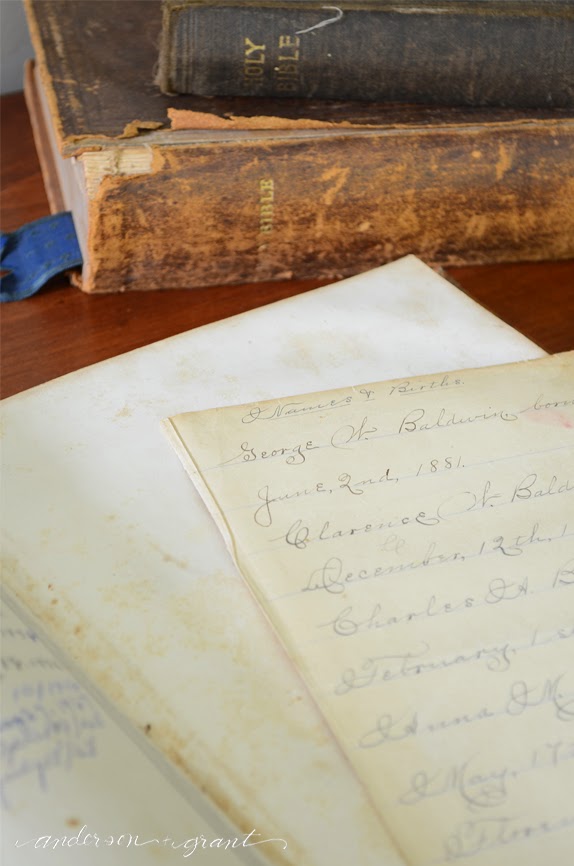 HOLY
BIBLE
BIBLE
Names & Births.
George W. Baldwin, born
June, 2nd, 1881.
Clarence W. Bald
December, 12th, 1
Charles A. B
February, 1s
Anna M.
May, 17
anderson + grant